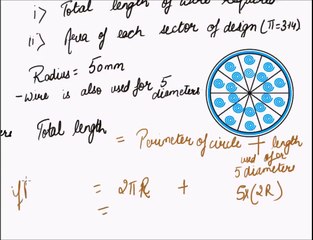 i) Total length of wire required
ii) Area of each sector of design (π=3.14)
Radius = 50mm
- Wire is also used for 5 diameters
Total length
= Perimeter of circle + length used of or 5 diameters
= 2πR + 5x(2R)
=